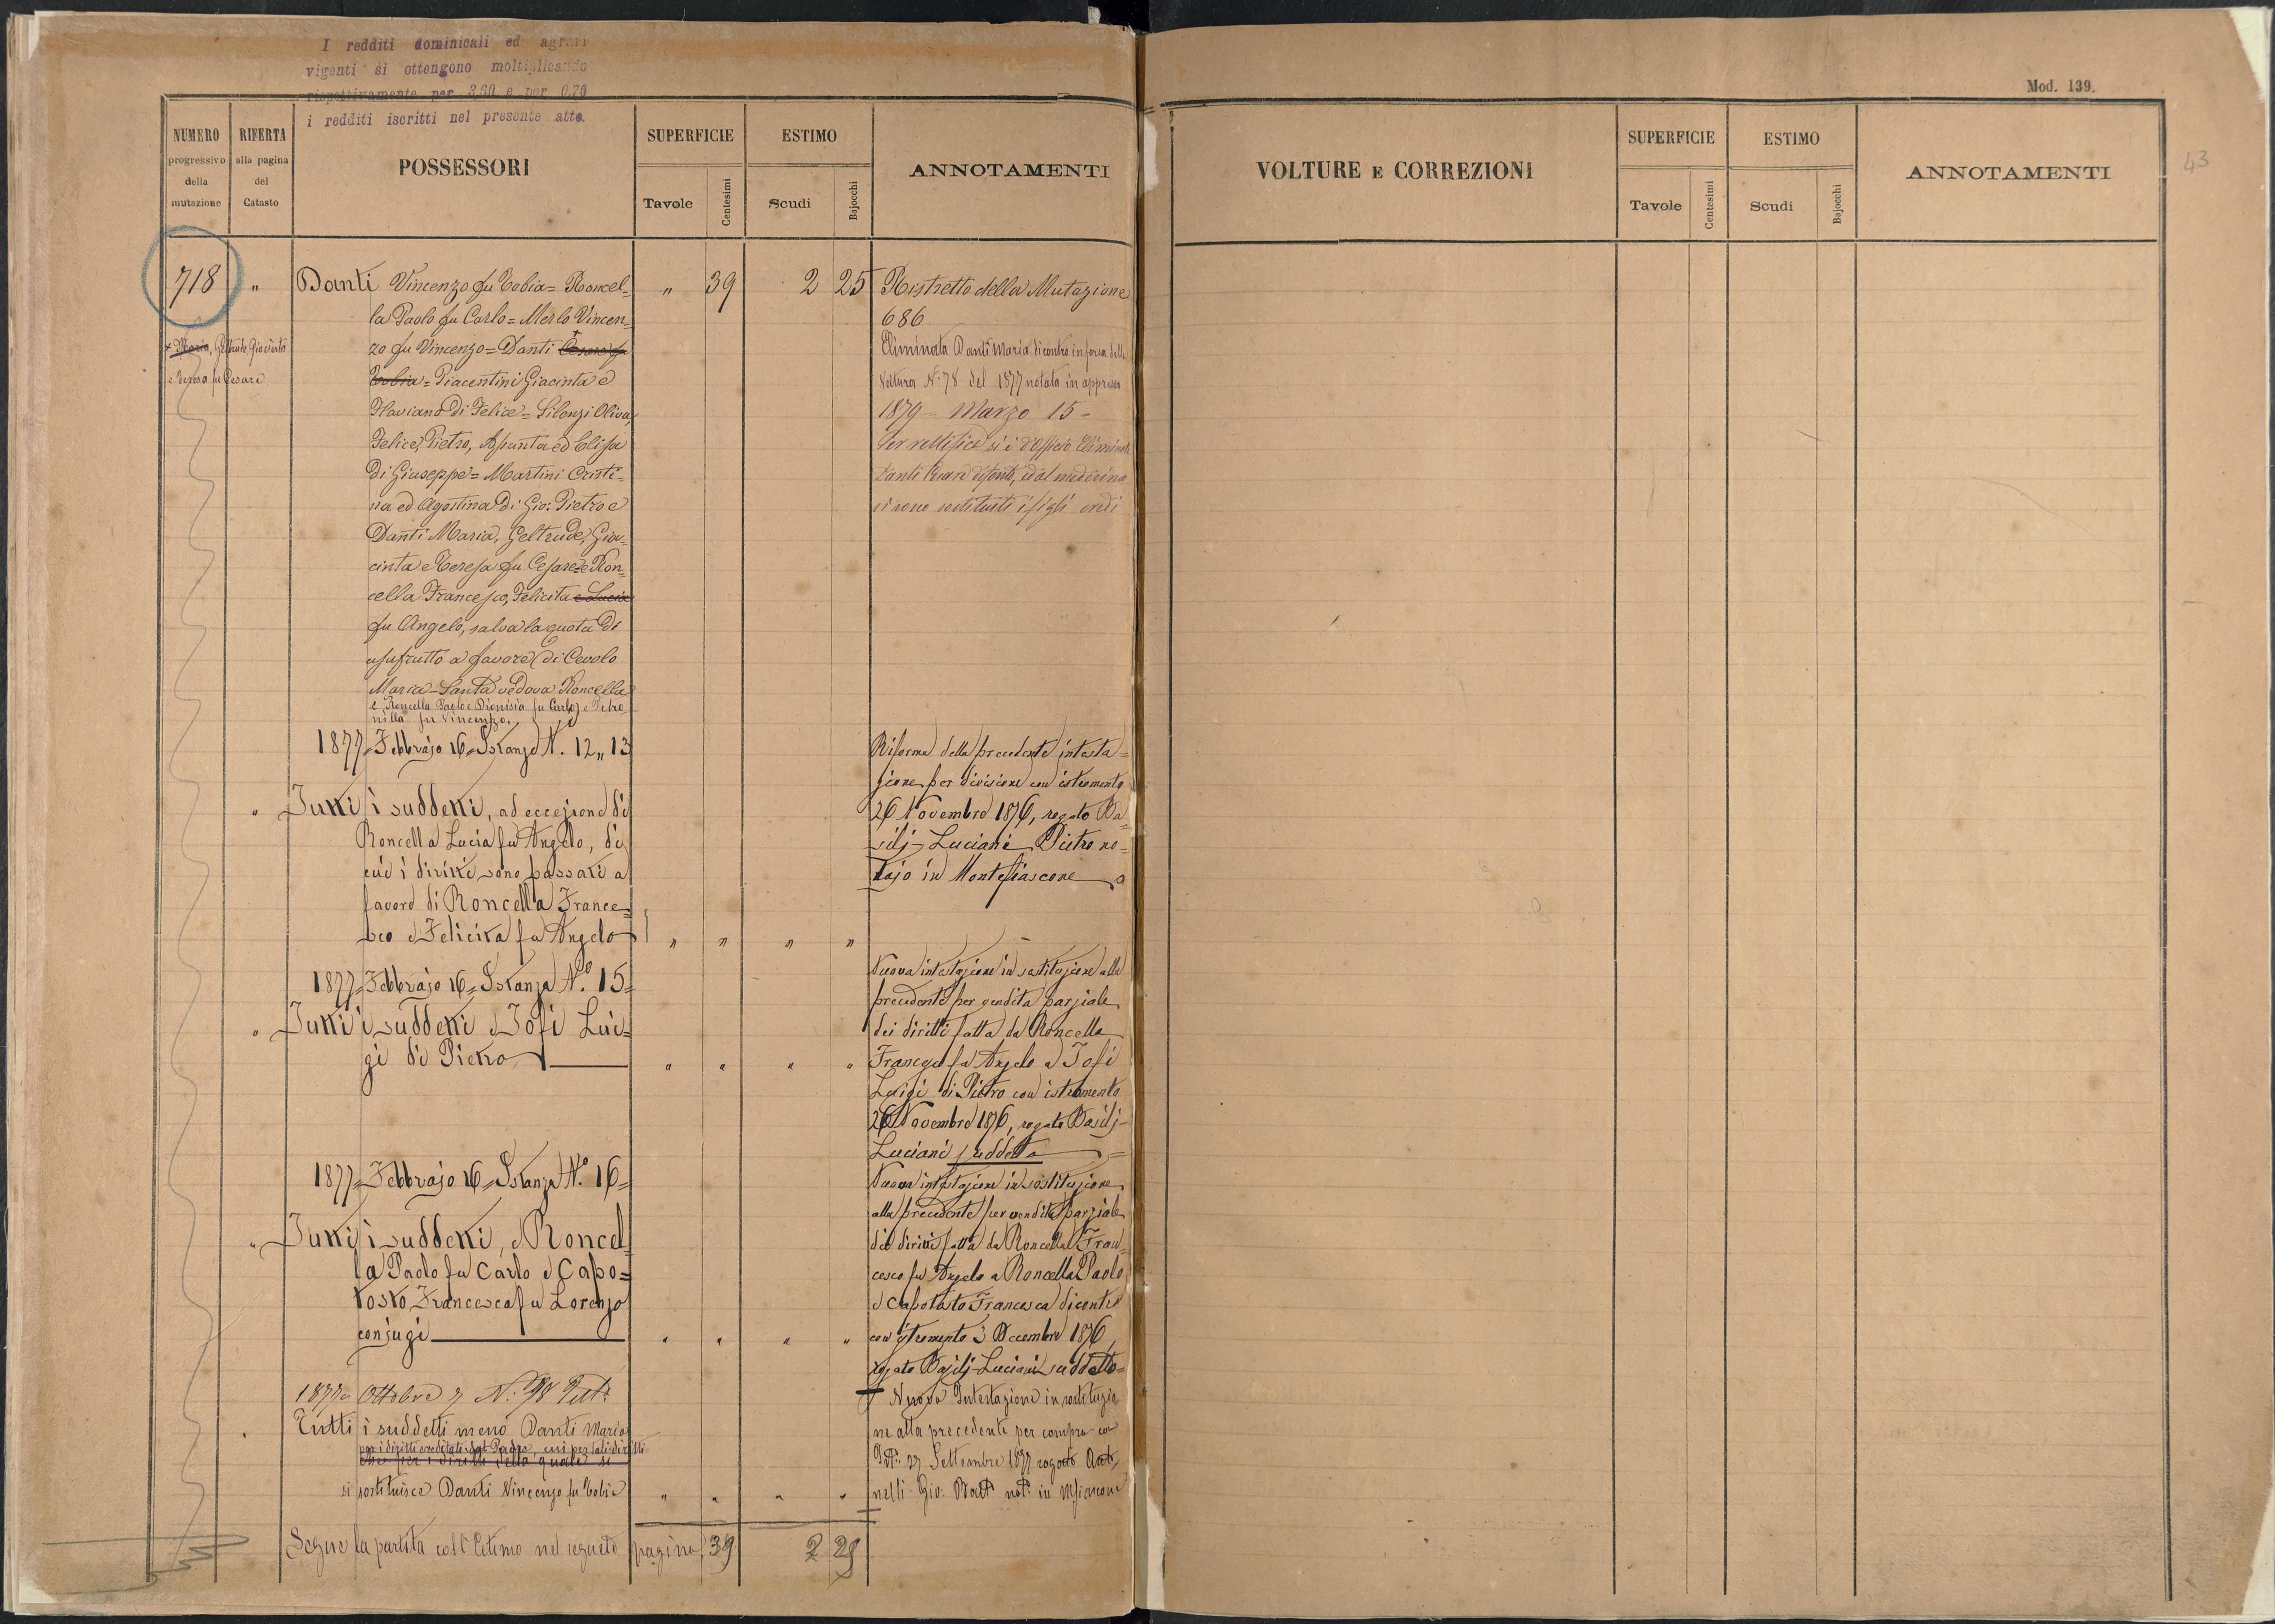 I redditi dominicali ed agrari
vigenti si ottengono moltiplicando
rispettivamente per 3,60 e per 0,70
i redditi iscritti nel presente atto.
NUMERO
progressivo
della
mutazione
RIFERTA
alla pagina
del
Catasto
POSSESSORI
SUPERFICIE
Tavole
Centesimi
ESTIMO
Scudi
Bajocchi
ANNOTAMENTI
718 " Danti Vincenzo fu Tobia = Roncel= " 39 2 25
la Paolo fu Carlo = Merlo Vincen=
zo fu Vincenzo = Danti + Cesare fu
Tobia = Piacentini Giacinta e
Flaviano di Felice = Silenzi Oliva,
Felice, Pietro, Assunta ed Elisa
di Giuseppe = Martini Cristi=
na ed Agostina di Gio: Pietro e
Danti Maria, Geltrude, Gia=
cinta e Teresa fu Cesare = e Ron=
cella Francesco, Felicita e Lucia
fu Angelo, salva la quota di
usufrutto a favore di Cevolo
Maria-Santa vedova Roncella
e Roncella Paolo e Dionisia fu Carlo, e Petro
nilla fu Vincenzo.
+ Maria, Geltrude, Giacinta
e Teresa fu Cesare
Ristretto della Mutazione
686
Eliminata Danti Maria di contro in forza della
Voltura N.º 78 del 1877 notata in appresso
1879 - Marzo 15 -
Per rettifica si è d'Officio Eliminato
Danti Cesare defonto, ed al medesimo
si sono sostituiti i figli eredi
1877 = Febbrajo 16 = Istanze N. 12 „ 13
" Tutti i suddetti, ad eccezione di
Roncella Lucia fu Angelo, di
cui i diritti sono passati a
favore di Roncella France=
sco e Felicita fu Angelo " " " "
Riforma della precedente intesta=
zione per divisione con istromento
26 Novembre 1876, rogato Ba=
silj-Luciani Pietro no=
tajo in Montefiascone
1877 = Febbrajo 16 = Istanza N.º 15 =
" Tutti i suddetti e Tosi Lui=
gi di Pietro " " " "
Nuova intestazione in sostituzione alla
precedente per vendita parziale
dei diritti fatta da Roncella
Francesco fu Angelo a Tosi
Luigi di Pietro con istromento
26 Novembre 1876, rogato Basilj-
Luciani suddetto =
1877 = Febbrajo 16 = Istanza N.º 16 =
" Tutti i suddetti, e Roncel=
la Paolo fu Carlo e Capo=
tosto Francesca fu Lorenzo
conjugi " " " "
Nuova intestazione in sostituzione
alla precedente per vendita parziale
dei diritti fatta da Roncella Fran=
cesco fu Angelo a Roncella Paolo
e Capotosto Francesca di contro
con istromento 3 Dicembre 1876,
rogato Basilj-Luciani suddetto =
1877 = Ottobre 7 N.º 78
Tutti i suddetti meno Danti Maria
per i diritti ereditati dal Padre, cui per tali diritti
si sostituisce Danti Vincenzo fu Tobia " " " "
Nuova Intestazione in sostituzio
ne alla precedente per compra con
27 Settembre 1877 rogato Anto
nelli Gio: Batt. not. in Mfiascone
Segue la partita coll' Estimo nel seguente pagina 39 2 25
Mod. 139.
43
VOLTURE E CORREZIONI
SUPERFICIE
Tavole
Centesimi
ESTIMO
Scudi
Bajocchi
ANNOTAMENTI